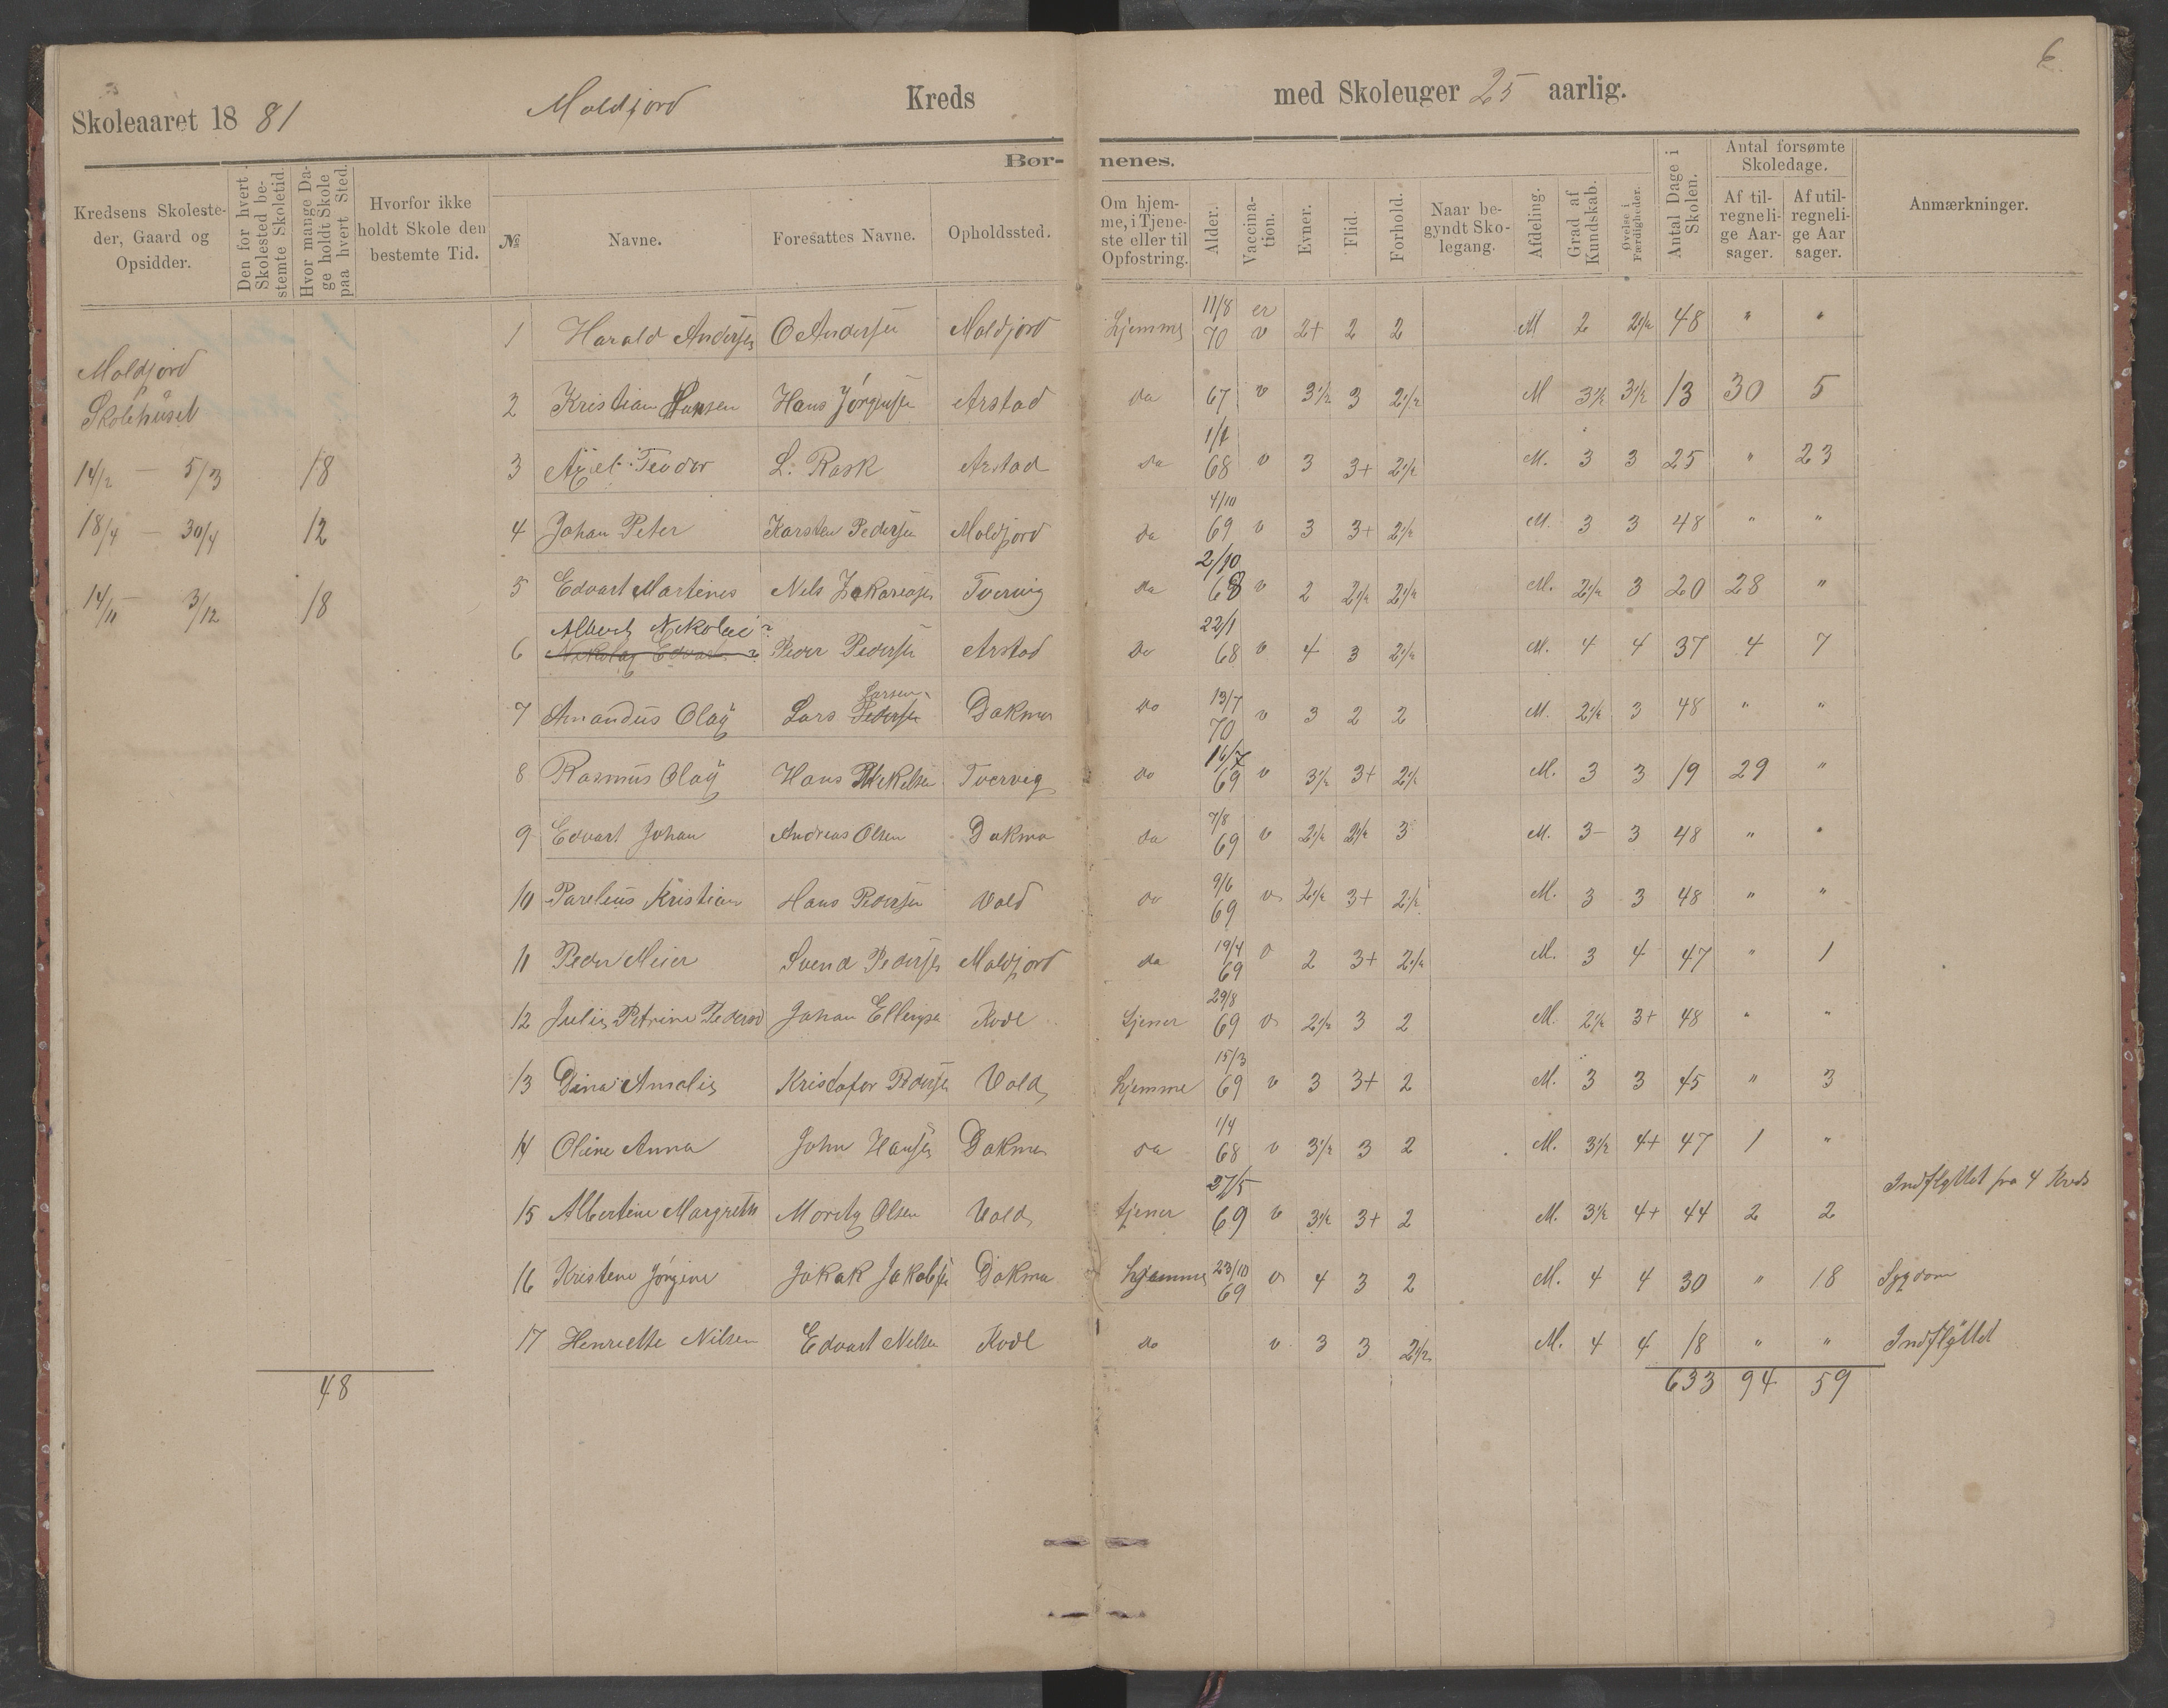 6
Skoleaaret 18 81 Moldjord Kreds med Skoleuger 25 aarlig.
Bør- nenes.
Kredsens Skoleste-
der, Gaard og
Opsidder.
Den for hvert
Skolested be-
stemte Skoletid.
Hvor mange Da-
ge holdt Skole
paa hvert Sted.
Hvorfor ikke
holdt Skole den
bestemte Tid.
№
Navne.
Foresattes Navne.
Opholdssted.
Om hjem-
me, i Tjene-
ste eller til
Opfostring.
Alder.
Vaccina-
tion.
Evner.
Flid.
Forhold.
Naar be-
gyndt Sko-
legang.
Afdeling.
Grad af
Kundskab.
Øvelse i
Færdigheder.
Antal Dage i
Skolen.
Antal forsømte
Skoledage.
Af til-
regneli-
ge Aar-
sager.
Af util-
regneli-
ge Aar
sager.
Anmærkninger.
Moldjord
Skolehuset
14/2 — 5/3 18
18/4 — 30/4 12
14/11 — 3/12 18
48
1 Harald Andersen O Andersen Moldjord hjemme 11/8 70 er v 2+ 2 2 M 2 2½ 48 " "
2 Kristian Hansen Hans Jørgensen Arstad do 67 v 3½ 3 2½ M 3½ 3½ 13 30 5
3 Axel Teodor L. Rask Arstad do 1/1 68 v 3 3+ 2½ M. 3 3 25 " 23
4 Johan Peter Karsten Pedersen Moldjord do 4/10 69 v 3 3+ 2½ M. 3 3 48 " "
5 Edvart Martines Nels Zakariasen Tvervig do 2/10 68 v 2 2½ 2½ M. 2½ 3 20 28 "
Albert Nikolai
6 Nikolay Edvart Peder Pedersen Arstad do 22/1 68 v 4 3 2½ M. 4 4 37 4 7
7 Amandus Olay Lars Larsen Pedersen Dokmo do 13/7 70 v 3 2 2 M. 2½ 3 48 " "
8 Rasmus Olay Hans Mekelsen Tvervig do 16/7 69 v 3½ 3+ 2½ M. 3 3 19 29 "
9 Edvart Johan Andreas Olsen Dokmo do 7/8 69 v 2½ 2½ 3 M. 3- 3 48 " "
10 Parelius Kristian Hans Pedersen Vold do 9/6 69 v 2½ 3+ 2½ M. 3 3 48 " "
11 Peder Meier Svend Pedersen Moldjord do 19/4 69 v 2 3+ 2½ M. 3 4 47 " 1
12 Julie Petrine Pedersd Johan Ellingsen Kvæl tjener 29/8 69 v 2½ 3 2 M. 2½ 3+ 48 " "
13 Dina Amalie Kristofer Pedersen Vold hjemme 15/3 69 v 3 3+ 2 M. 3 3 45 " 3
14 Oline Anna John Hansen Dokmo do 1/4 68 v 3½ 3 2 M. 3½ 4+ 47 1 "
15 Albertine Margrethe Moritz Olsen Vold tjener 27/5 69 v 3½ 3+ 2 M. 3½ 4+ 44 2 2 Indflyttet fra 4 Kreds
16 Kristene Jørgine Jakob Jakobsen Dokmo hjemme 23/10 69 v 4 3 2 M. 4 4 30 " 18 Sygdom
17 Henriette Nilsen Edvart Nelsen Kvæl do v 3 3 2½ M. 4 4 18 " " Indflyttet
633 94 59